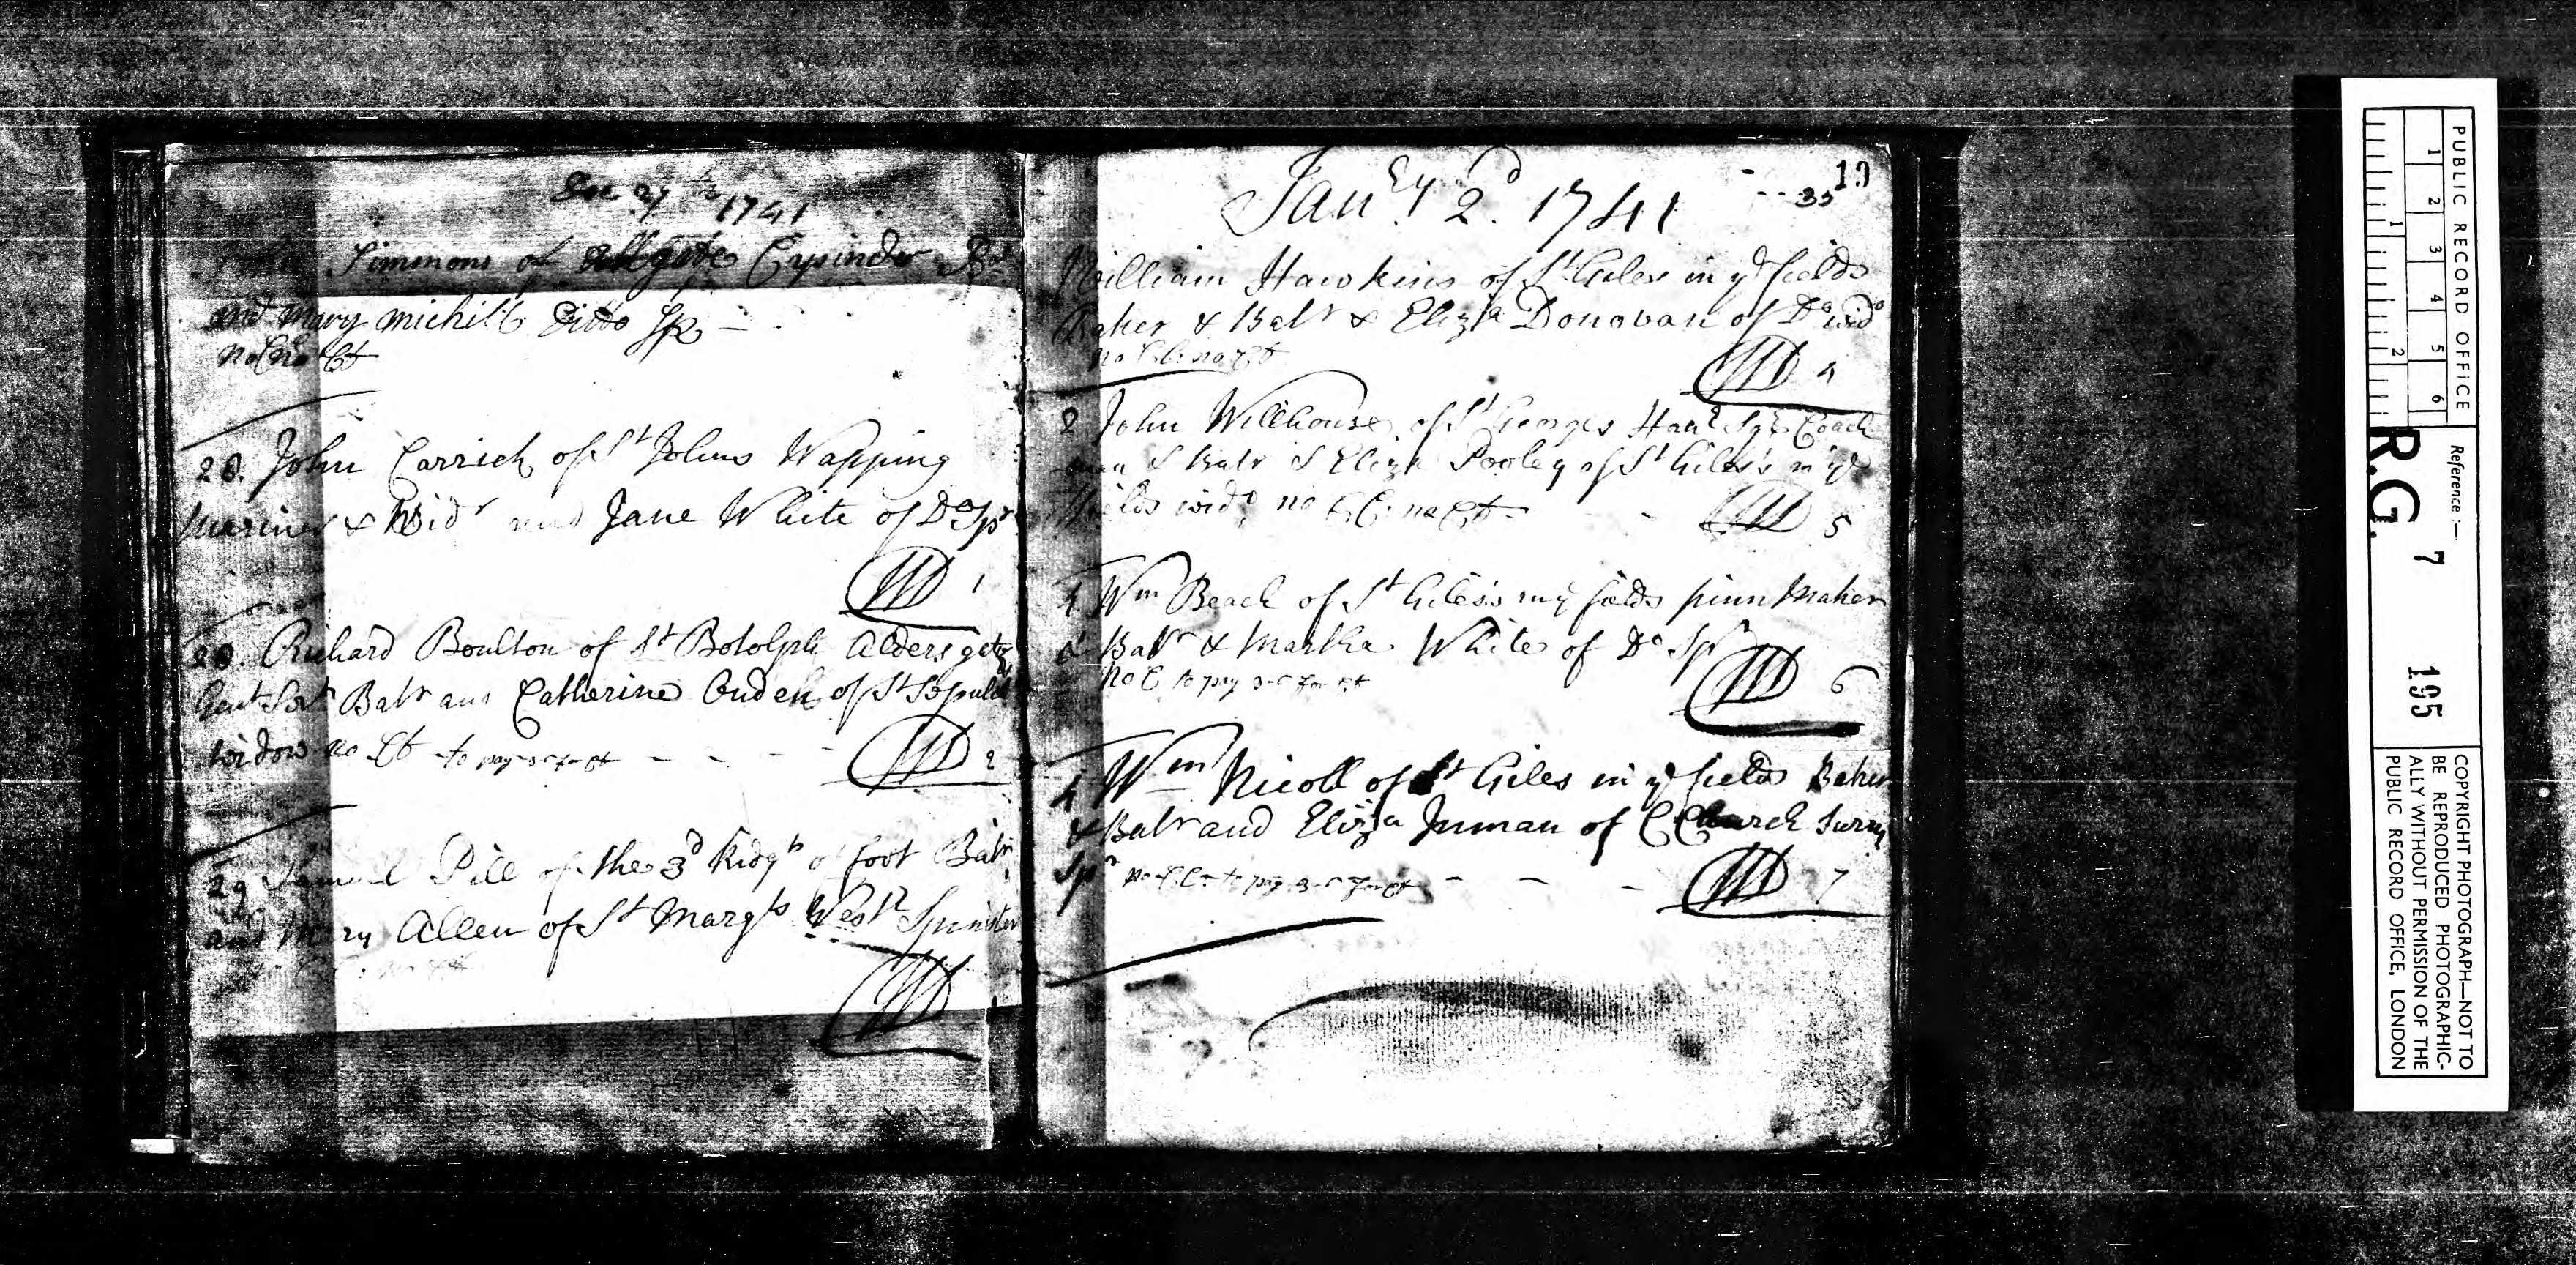 Dec 27th 1741
Simmons of Allgate Cypinder Bat
and Mary Michill Ditto Sp
no C no Ct
28. John Carrick of St Johns Wapping
Mariner & Widr and Jane White of Do Spr
1
28. Richard Boulton of St Botolph Aldersgate
Gent Batr and Catherine of St Sepulch
Widow no Ct to pay for Ct
2
29 Samuel Pill of the 3d Ridgt of foot Batr
and Mary Allen of St Margts Westr Spinster
no Ct
Jany 2d. 1741
35
19
William Hawkins of St Giles in ye fields
Baker & Batr & Eliza Donovan of Do wido
no C: no Ct
4
2 John Willhouse of St Georges Hanr Sqr Coach
man & Batr & Eliza Pooley of St Giles's in ye
Fields widd no CC: no Ct
5
4 Wm Beach of St Giles's in ye fields pinn Maker
& Batr & Martha White of Do Spr
no C to pay for Ct
6
4 Wm Nicoll of St Giles in ye fields Baker
& Batr and Eliza Inman of C Church Surry
Spr no CC to pay for Ct
7
PUBLIC RECORD OFFICE
1 2 3 4 5 6
1 2
Reference:—
R.G. 7 195
COPYRIGHT PHOTOGRAPH—NOT TO
BE REPRODUCED PHOTOGRAPHIC-
ALLY WITHOUT PERMISSION OF THE
PUBLIC RECORD OFFICE, LONDON